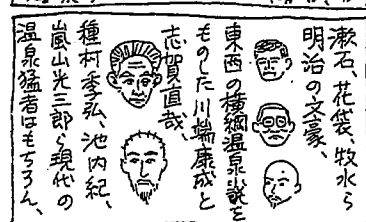 漱石、花袋、牧水ら
明治の文豪、
東西の横綱温泉小説を
ものした川端康成と
志賀直哉、
種村季弘、池内紀、
嵐山光三郎ら現代の
温泉猛者はもちろん、